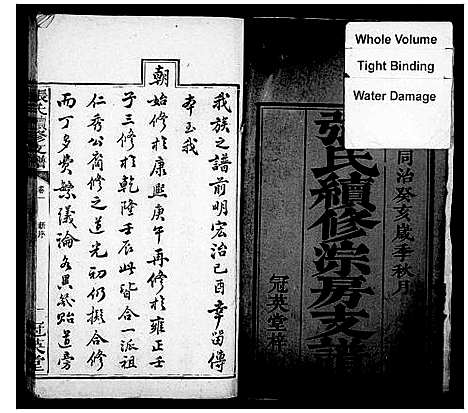 Whole Volume
Tight Binding
Water Damage
同治癸亥歲季秋月
張氏續修崇房支譜
冠英堂梓
我族之譜前明宏治己酉幸留傳
本至我
朝
始修於康熙庚午再修於雍正壬
子三修於乾隆壬辰此皆合一派祖
仁秀公裔修之道光初仍擬合修
而丁多費繁議論各異幾貽道旁
張氏續修支譜
卷一
新序
一
冠英堂